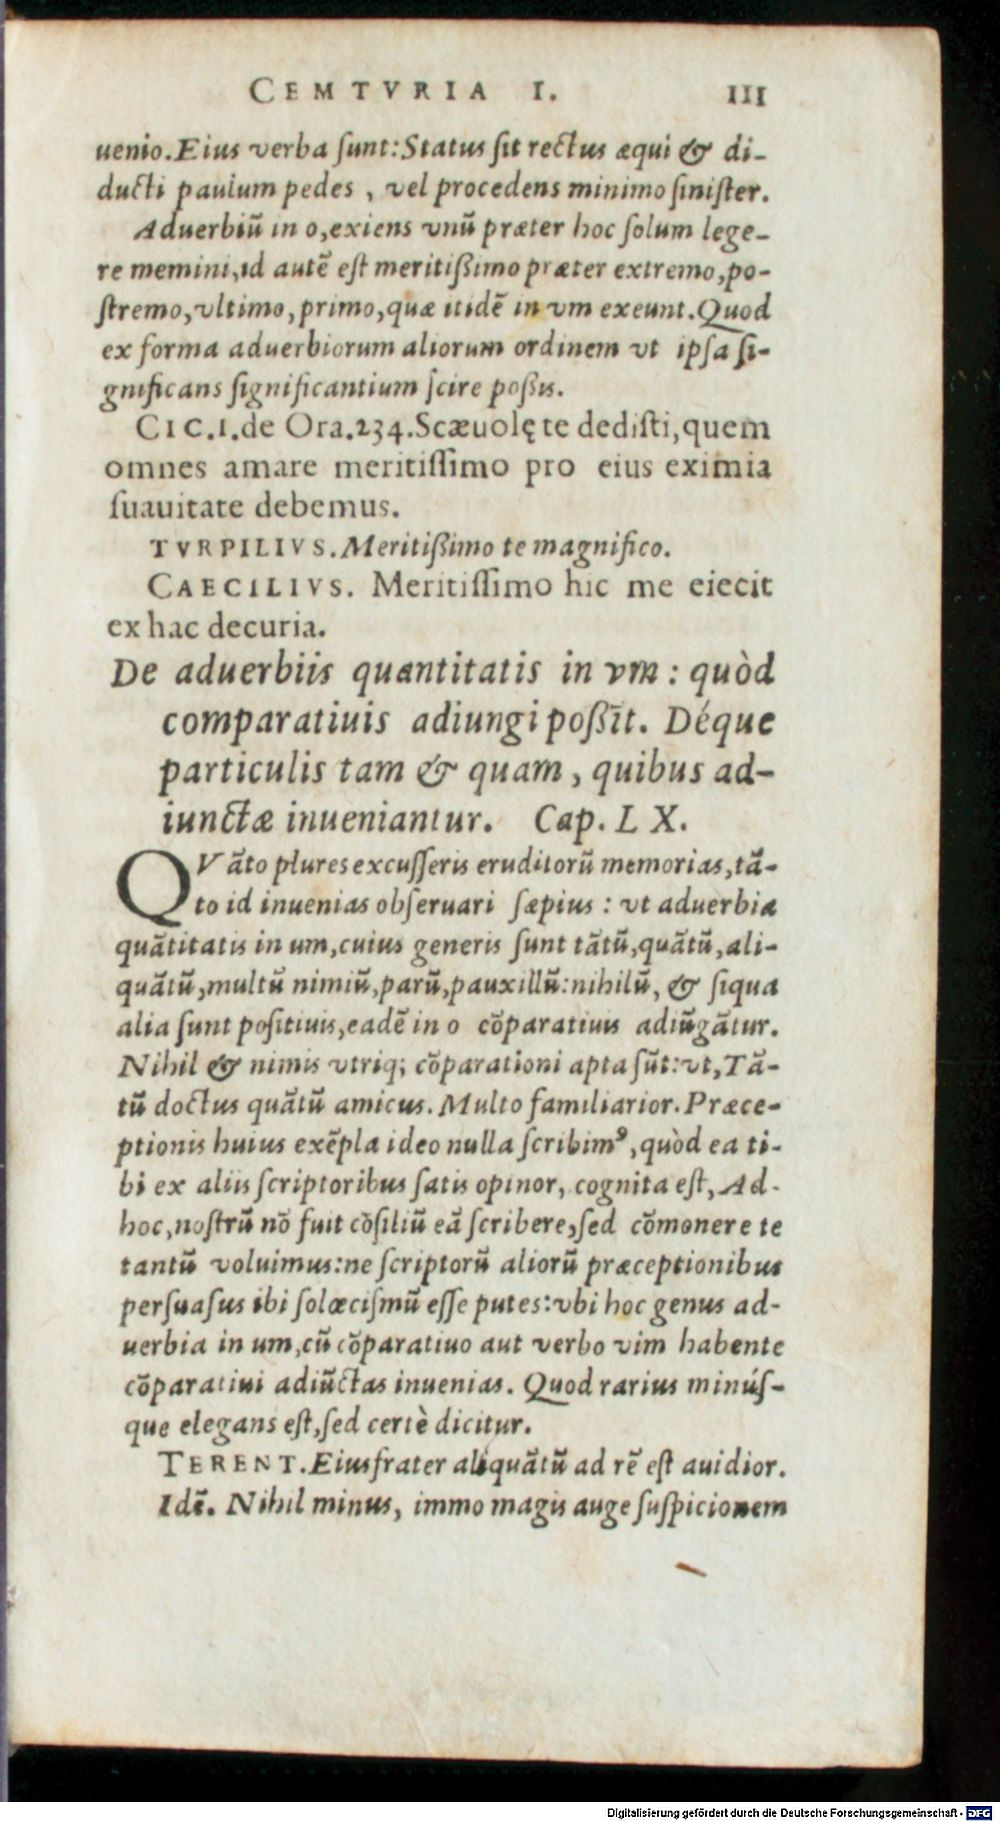 CEMTVRIA I. III
uenio. Eius verba ſunt: Status ſit rectus æqui & di-
ducti paulum pedes, vel procedens minimo ſiniſter.
Aduerbiũ in o, exiens vnũ præter hoc ſolum lege-
re memini, id autẽ eſt meritißimo præter extremo, po-
ſtremo, vltimo, primo, quæ itidẽ in vm exeunt. Quod
ex forma aduerbiorum aliorum ordinem vt ipſa ſi-
gnificans ſignificantium ſcire poßis.
CIC. 1. de Ora. 234. Scæuolę te dediſti, quem
omnes amare meritiſſimo pro eius eximia
ſuauitate debemus.
TVRPILIVS. Meritißimo te magnifico.
CAECILIVS. Meritiſſimo hic me eiecit
ex hac decuria.
De aduerbiis quantitatis in vm: quòd
comparatiuis adiungi poßīt. Déque
particulis tam & quam, quibus ad-
iunctæ inueniantur. Cap. LX.
QVãto plures excuſſeris eruditorũ memorias, tã-
to id inuenias obſeruari ſæpius: vt aduerbia
quãtitatis in um, cuius generis ſunt tãtũ, quãtũ, ali-
quãtũ, multũ nimiũ, parũ, pauxillũ: nihilũ, & ſiqua
alia ſunt poſitiuis, eadẽ in o cõparatiuis adiũgãtur.
Nihil & nimis vtriq; cõparationi apta ſũt: vt, Tã-
tũ doctus quãtũ amicus. Multo familiarior. Præce-
ptionis huius exẽpla ideo nulla ſcribimꝰ, quòd ea ti-
bi ex aliis ſcriptoribus ſatis opinor, cognita eſt, Ad-
hoc, noſtrũ nõ fuit cõſiliũ eã ſcribere, ſed cõmonere te
tantũ voluimus: ne ſcriptorũ aliorũ præceptionibus
perſuaſus ibi ſolœciſmũ eſſe putes: vbi hoc genus ad-
uerbia in um, cũ cõparatiuo aut verbo vim habente
cõparatiui adiũctas inuenias. Quod rarius minúſ-
que elegans eſt, ſed certè dicitur.
TERENT. Eius frater aliquãtũ ad rẽ eſt auidior.
Idẽ. Nihil minus, immo magis auge ſuſpicionem
Digitalisierung gefördert durch die Deutsche Forschungsgemeinschaft - DFG